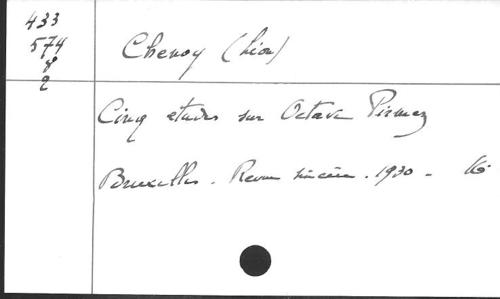 433
574
8
2
Chenoy (Léon)
Cinq études sur Octave Pirmez
Bruxelles. Revue sincère. 1930 - 16°